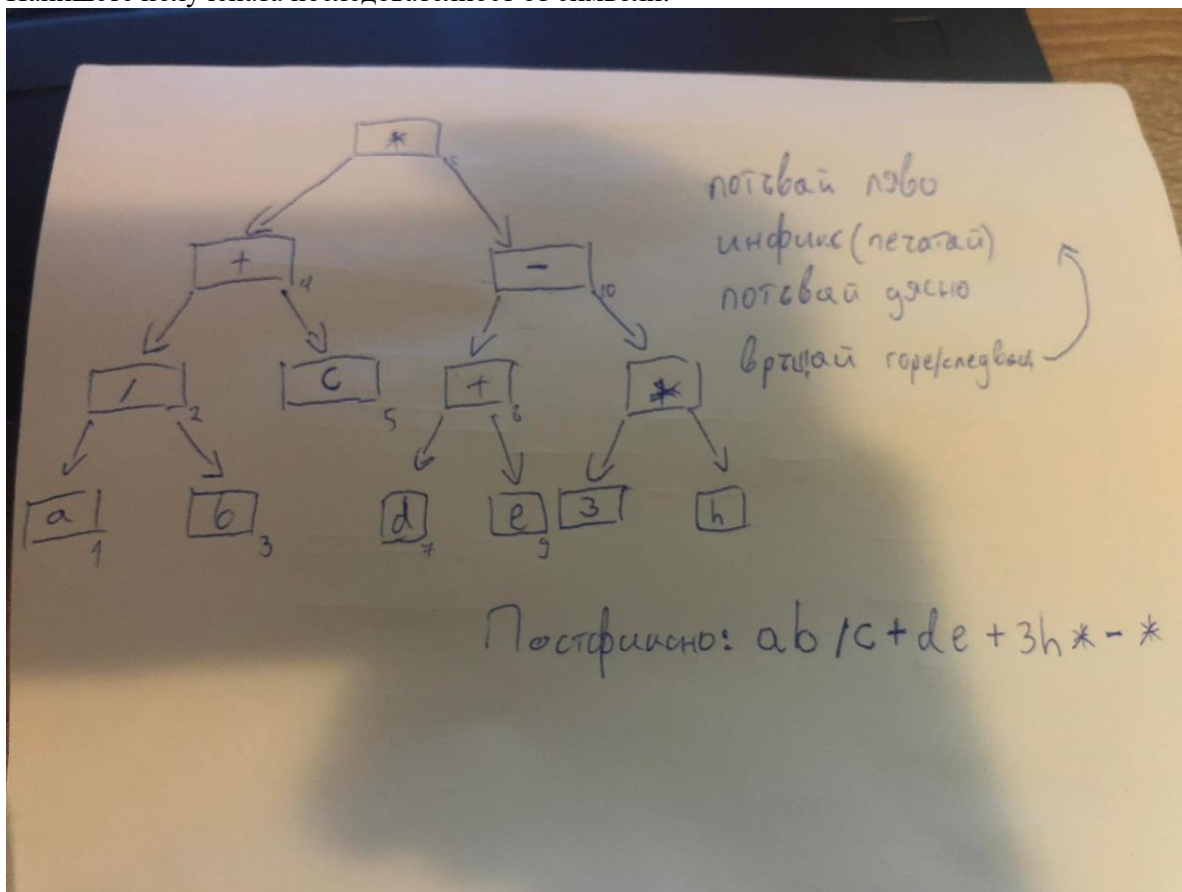 *
+ 4
- 10
/ 2
c 5
+ 8
*
a 1
b 3
d 7
e 9
3
h
потъвай ляво
инфикс (печатай)
потъвай дясно
връщай горе/следващ
Постфиксно: ab/c+de+3h*-*